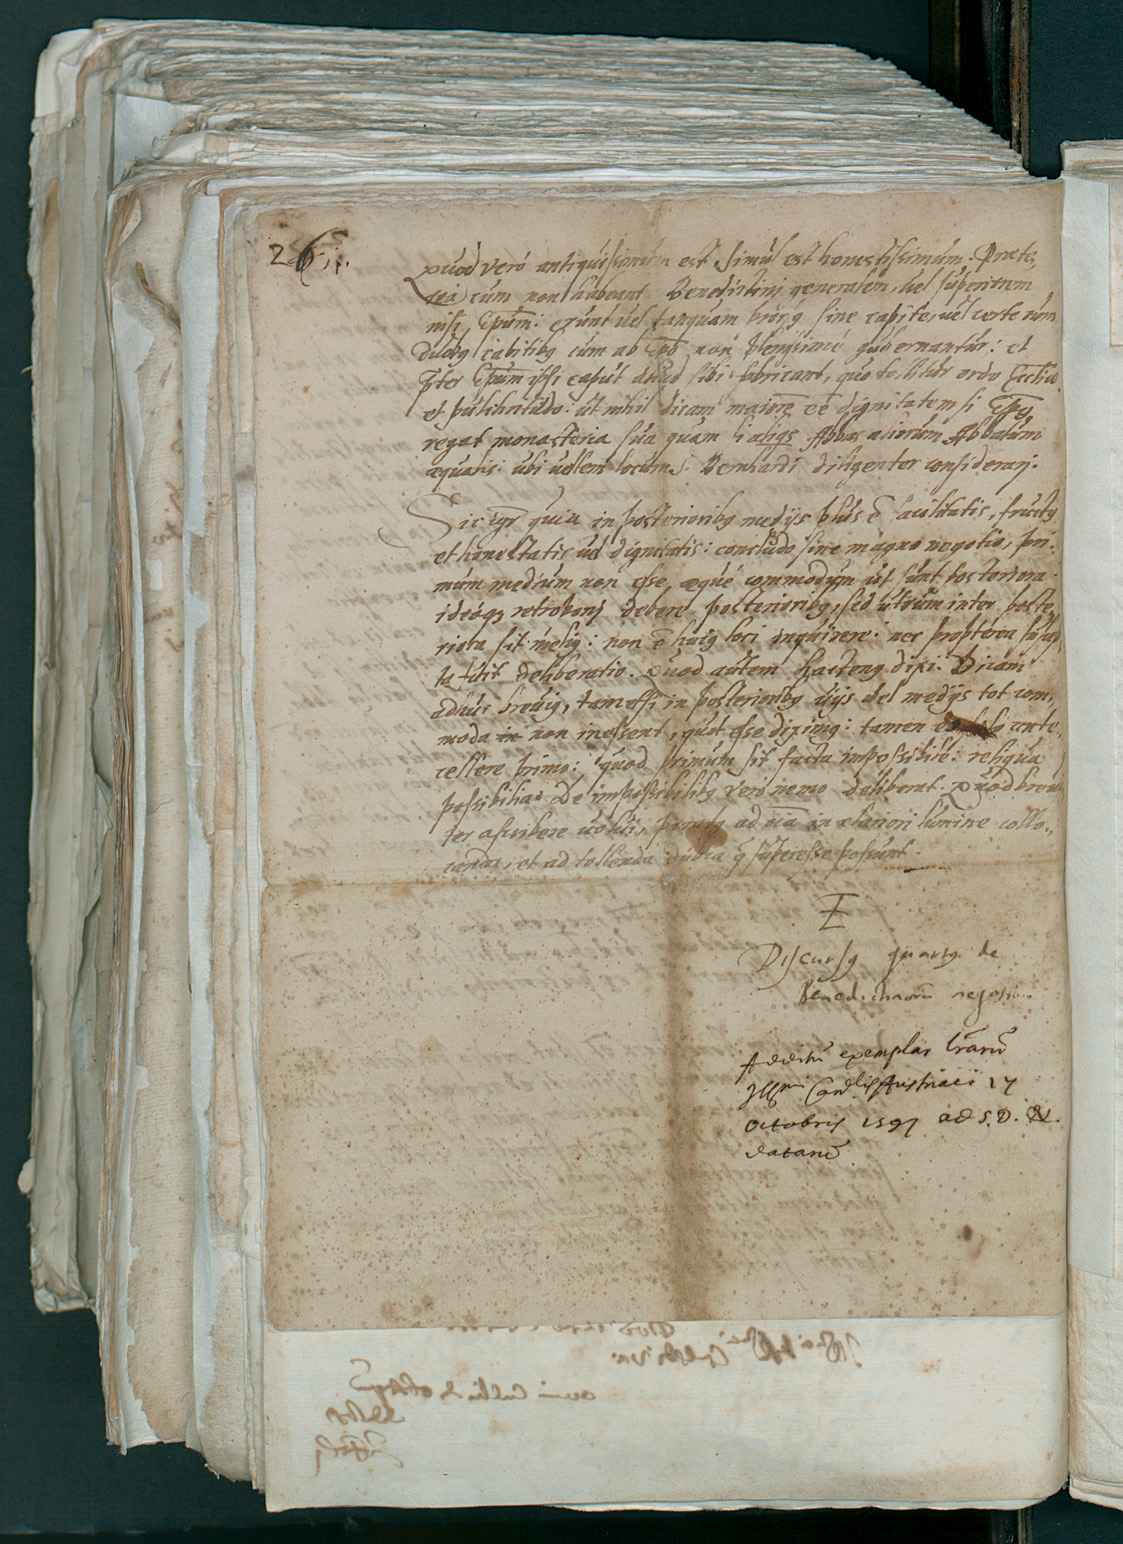 26
Quod vero antiquissimum est simul est honestissimum. Præte,
rea cum non habeant Benedictini generalem, vel superiorem
nisi Ep̄um: erunt vel tanquam corpꝯ sine capite, vel certe cum
duobꝯ capitibꝯ cum ab Ep̄o non plenissime gubernantur: et
p̄ter Ep̄um ipsi caput aliud sibi fabricant, quo tollitur ordo Eccliæ
et pulchritudo: ut nihil dicam maiorē eē dignitatem si Ep̄ꝯ
regat monasteria sua quam si aliqs Abbas aliorum Abbatum
æqualis: ubi vellem locum S. Bernhardi diligenter considerarj.
Sic igr quia in posterioribꝯ medijs plus ē facilitatis, fructꝯ
et honestatis vel dignitatis: concludo sine magno negotio, pri,
mum medium non esse æque commodum ut sunt posteriora
ideoqꝫ retrobanj debere posterioribꝯ, sed utrum inter poste,
riora sit meliꝯ: non ē huiꝯ loci inquirere: nec propterea
ta fuit deliberatio. Quod autem hactenꝯ dixi. Dicam
adhuc breviꝯ, tametsi in posterioribꝯ vijs vel medijs tot com,
moda in non inessent, quot esse diximꝯ: tamen ante,
cellere primo: quod primum sit factu impossibile: reliqua
possibilia. De impossibilibꝯ vero nemo deliberat. Quod brevi
ter ascribere volui, ad in clariori lumine collo,
canda, et ad tollenda dubia q̄ superesse possunt.
E
Discursꝯ quartꝯ de
Benedictinorū negotio
Additū exemplar lr̄arū
Illmi Cardlis Austriaci 17
Octobris 1597 ad S. D. N.
datarū